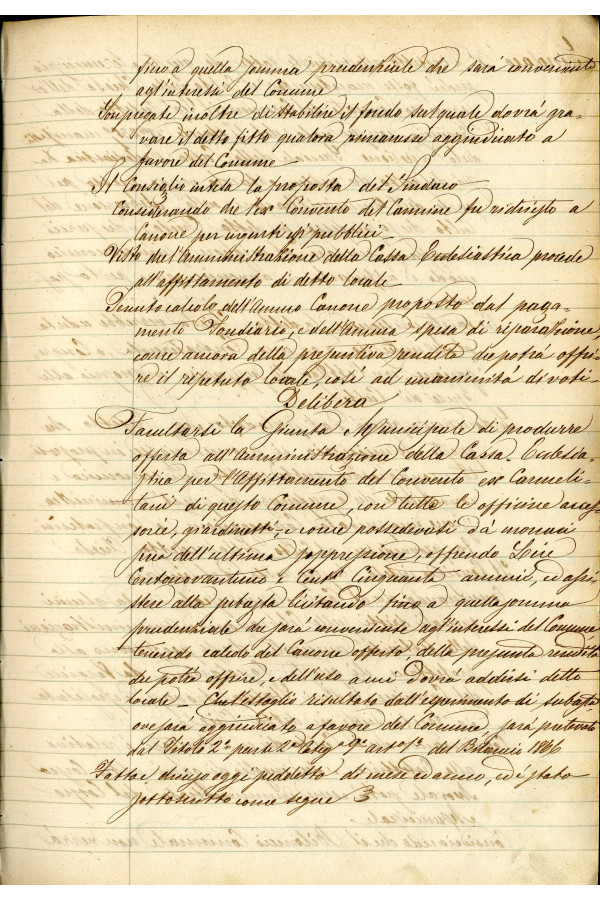 fino a quella somma prudenziale che sarà conveniente
agl'interessi del Comune
Son pregate inoltre di stabilire il fondo sul quale dovrà gra-
vare il detto fitto qualora rimanesse aggiudicato a
favore del Comune
Il Consiglio intesa la proposta del Sindaco
Considerando che l'ex Convento del Carmine fu richiesto a
Canone per urgenti usi pubblici
Visto che l'Amministrazione della Cassa Ecclesiastica procede
all'affittamento di detto locale
Tenuto calcolo dell'annuo Canone proposto dal paga-
mento Fondiario, e dell'annua spesa di riparazione,
come ancora della presuntiva rendita che potrà offri-
re il ripetuto locale, così ad unanimità di voti
Delibera
Facultarsi la Giunta Municipale di produrre
offerta all'Amministrazione della Cassa Ecclesia-
stica per l'Affittamento del Convento ex Carmeli-
tani di questo Comune, con tutte le officine acces-
sorie, giardinetti, e come possedevasi dà monaci
pria dell'ultima soppressione, offrendo Lire
Centonovantuno e Cent. Cinquanta annui, ed assi-
stere alla licitando fino a quella somma
prudenziale che sarà conveniente agl'interessi del Comune
tenendo calcolo del Canone offerto della presunta rendita
che potrà offrire, e dell'uso a cui dovrà addirsi detto
locale – Che l'estaglio risultato dall'esperimento di subasta
ove sarà aggiudicato a favore del Comune, sarà prelevato
dal Titolo 2° parte 2ª Categ. art. del Bilancio 1866
Fatto e chiuso oggi suddetto dì mese ed anno, ed è stato
sottoscritto come segue